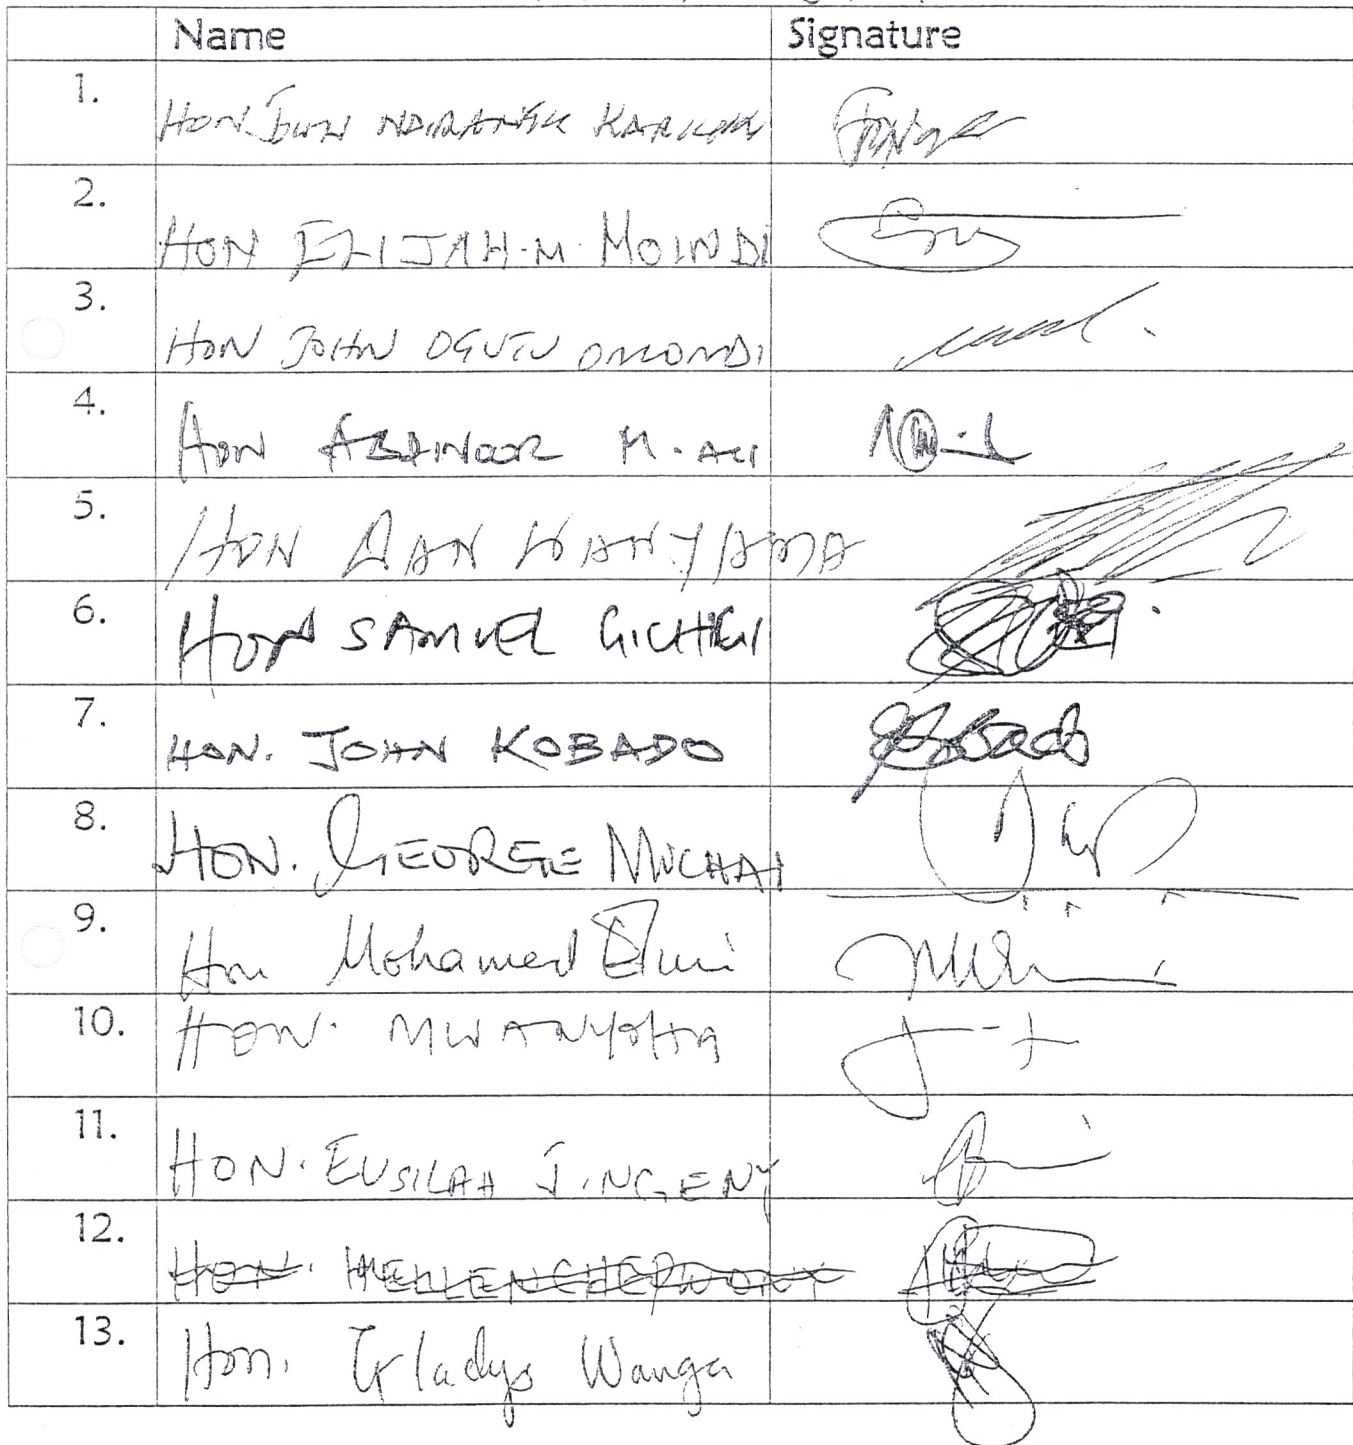 Name Signature
1. HON JOHN KARIUKI
2. HON ELIJAH.M. MOINDI
3. HON JOHN OGUTU OMONDI
4. HON ABDINOOR M. ALI
5. HON DAN WANYAMA
6. HON SAMUEL GICHIGI
7. HON. JOHN KOBADO
8. HON. GEORGE MUCHAI
9. Hon Mohamed Elmi
10. HON. MWANYOHA
11. HON. EUSILAH J. NGENY
12. HON. HELLEN CHEPWONY
13. Hon. Gladys Wanga